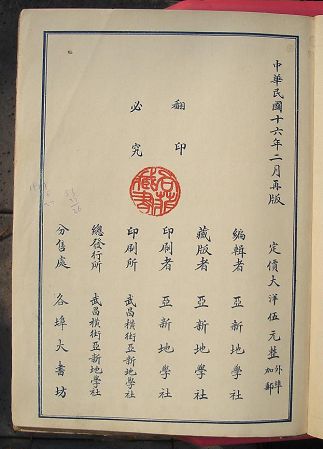 中華民國十六年二月再版
定價大洋伍元整 外埠加郵
翻印必究
編輯者 亞新地學社
藏版者 亞新地學社
印刷者 亞新地學社
印刷所 武昌橫街亞新地學社
總發行所 武昌橫街亞新地學社
分售處 各埠大書坊